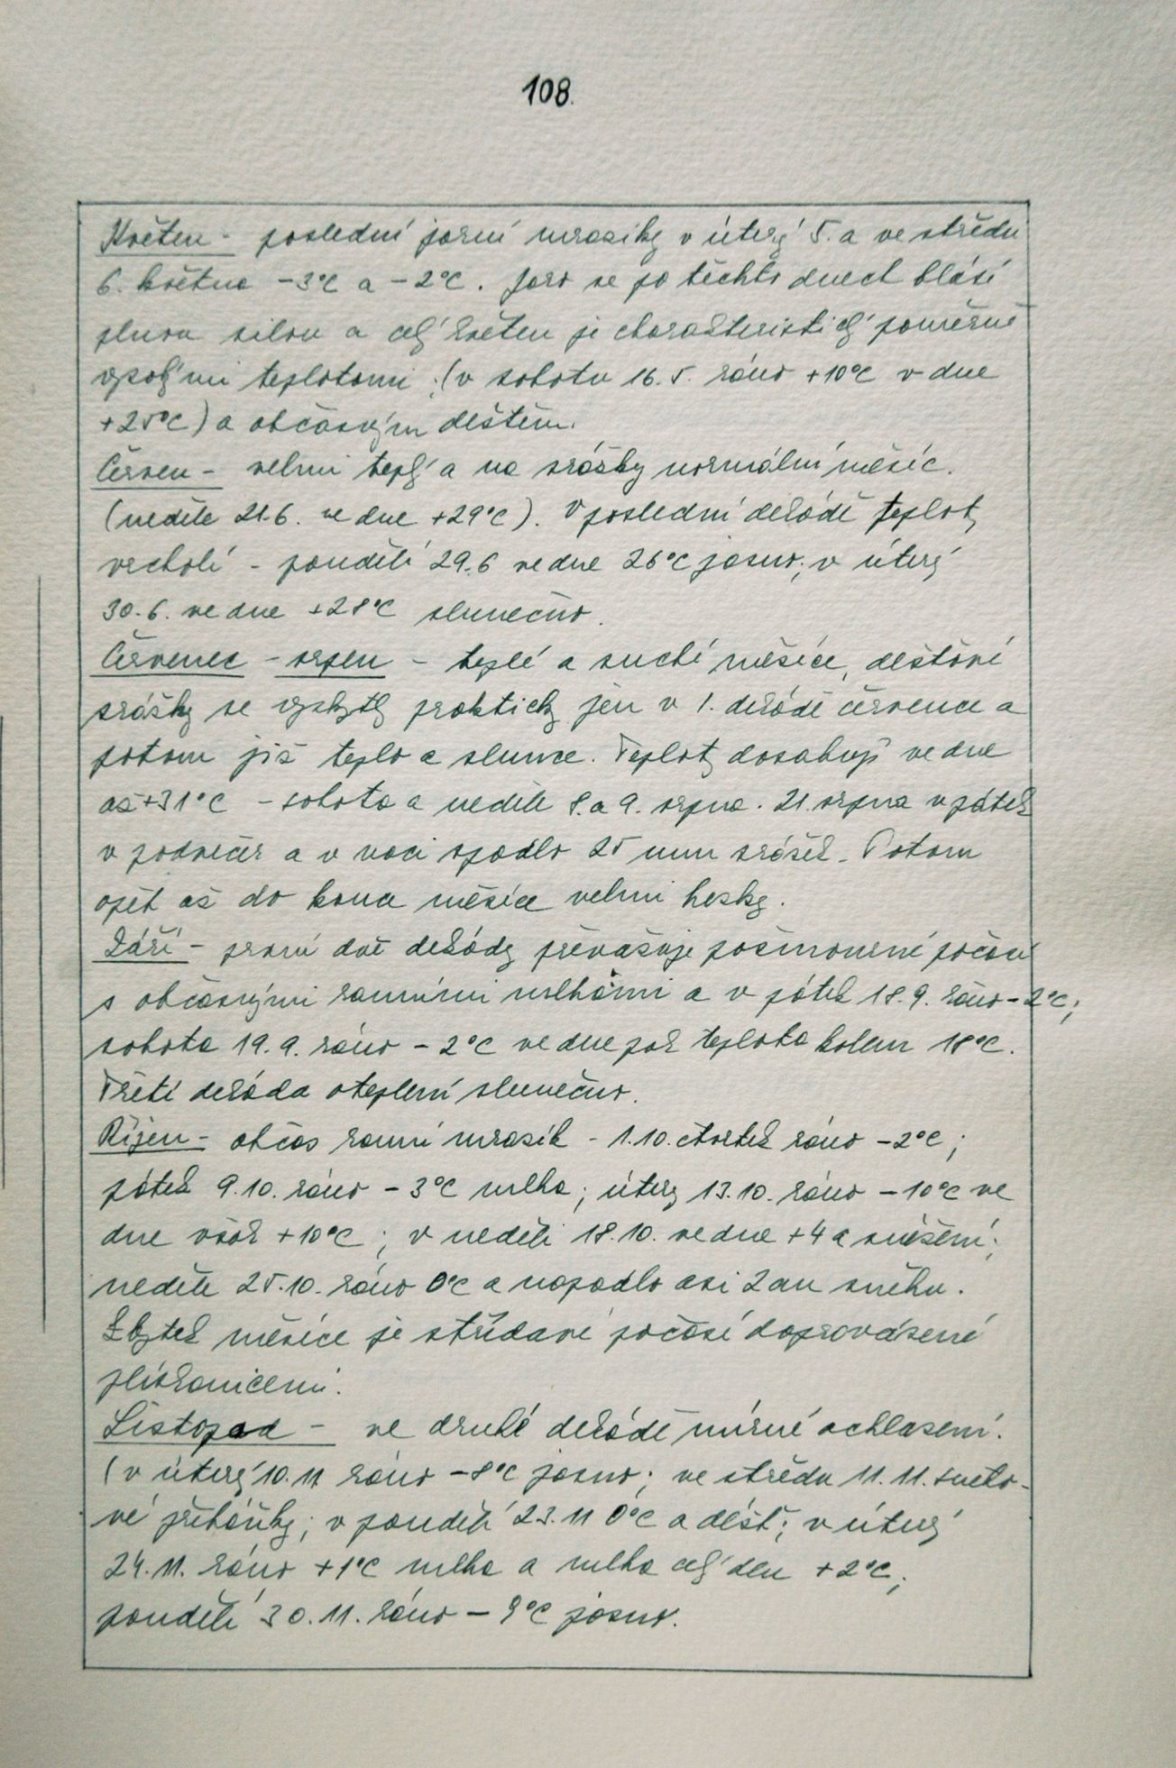 108.
Květen - poslední jarní mrazíky v úterý 5. a ve středu
6. května -3°C a -2°C. Jaro se po těchto dnech hlásí
plnou silou a celý květen je charakteristický poměrně
vysokými teplotami (v sobotu 16.5. ráno +10°C v dne
+25°C) a občasným deštěm.
Červen - velmi teplý a na srážky normální měsíc.
(neděle 21.6. ve dne +29°C). V poslední dekádě teploty
vrcholí - pondělí 29.6 ve dne 26°C jasno; v úterý
30.6. ve dne +28°C slunečno.
Červenec - srpen - teplé a suché měsíce, dešťové
srážky se vyskytly prakticky jen v 1. dekádě července a
potom již teplo a slunce. Teploty dosahují ve dne
až +31°C - sobota a neděle 8. a 9. srpna. 21. srpna v pátek
v podvečer a v noci spadlo 25 mm srážek. Potom
opět až do konce měsíce velmi hezky.
Září - první dvě dekády převažuje pošmourné počasí
s občasnými ranními mlhami a v pátek 18.9. ráno -2°C;
sobota 19.9. ráno - 2°C ve dne pak teplota kolem 18°C.
Třetí dekáda oteplení slunečno.
Říjen - občas ranní mrazík - 1.10. čtvrtek ráno -2°C;
pátek 9.10. ráno - 3°C mlha; úterý 13.10. ráno -10°C ve
dne však +10°C; v neděli 18.10. ve dne +4 a sněžení;
neděle 25.10. ráno 0°C a napadlo asi 2 cm sněhu.
Zbytek měsíce je střídavé počasí doprovázené
plískanicemi.
Listopad - ve druhé dekádě mírné ochlazení.
(v úterý 10.11 ráno -8°C jasno; ve středu 11.11. sněho-
vé přeháňky; v pondělí 23.11 0°C a déšť; v úterý
24.11. ráno +1°C mlha a mlha celý den +2°C;
pondělí 30.11. ráno - 8°C jasno.